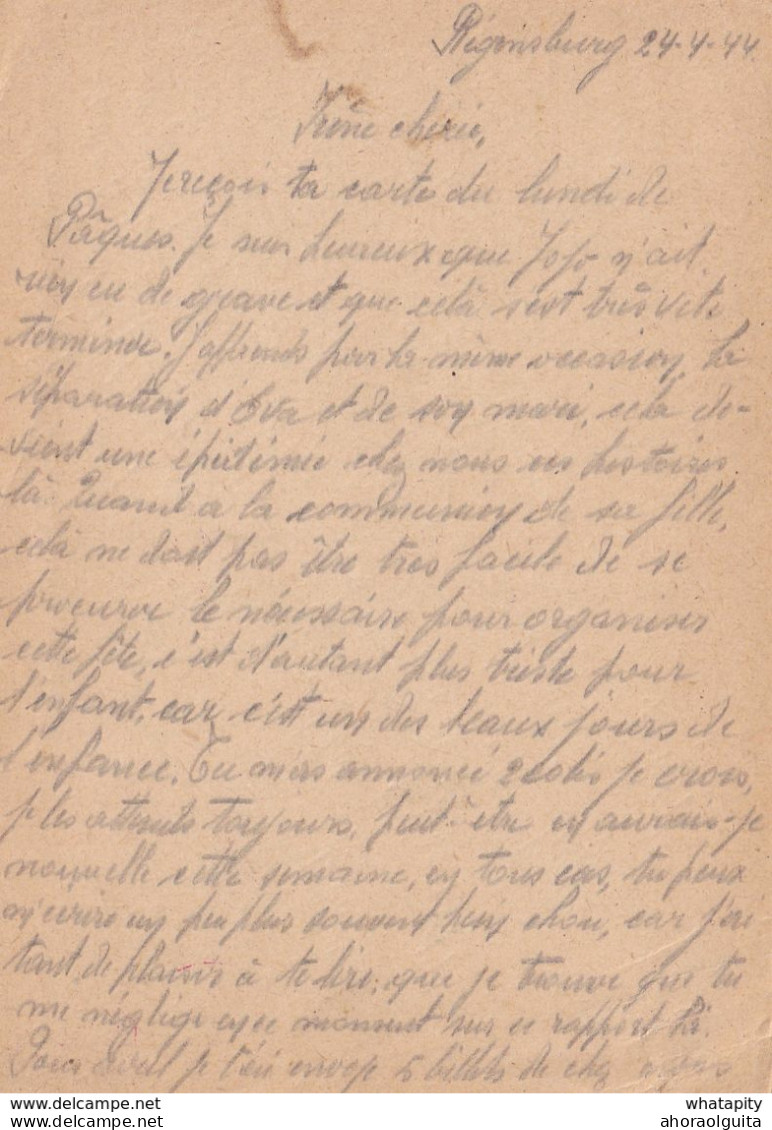 Régensburg 24-4-44
Irène chérie,
Je reçois ta carte du lundi de
Pâques. Je suis heureux que Jojo n'ait
rien eu de grave et que cela s'est très vite
terminé. J'apprends par la même occasion, la
séparation d'Eva et de son mari, cela de-
vient une épidémie chez nous ces histoires
là. Quant à la communion de sa fille,
celà ne doit pas être très facile de se
procurer le nécessaire pour organiser
cette fête, c'est d'autant plus triste pour
l'enfant, car c'est un des beaux jours de
l'enfance. Tu m'as annoncé 2 colis je crois,
je les attends toujours, peut-être en aurais-je
nouvelle cette semaine, en tous cas, tu peux
m'écrire un peu plus souvent mon chou, car j'ai
tant de plaisir à te lire, que je trouve que tu
me néglige en ce moment sur ce rapport là.
Pour avril je t'ai envoyé 5 billets de chez nous
whatapity
ahoraolguita